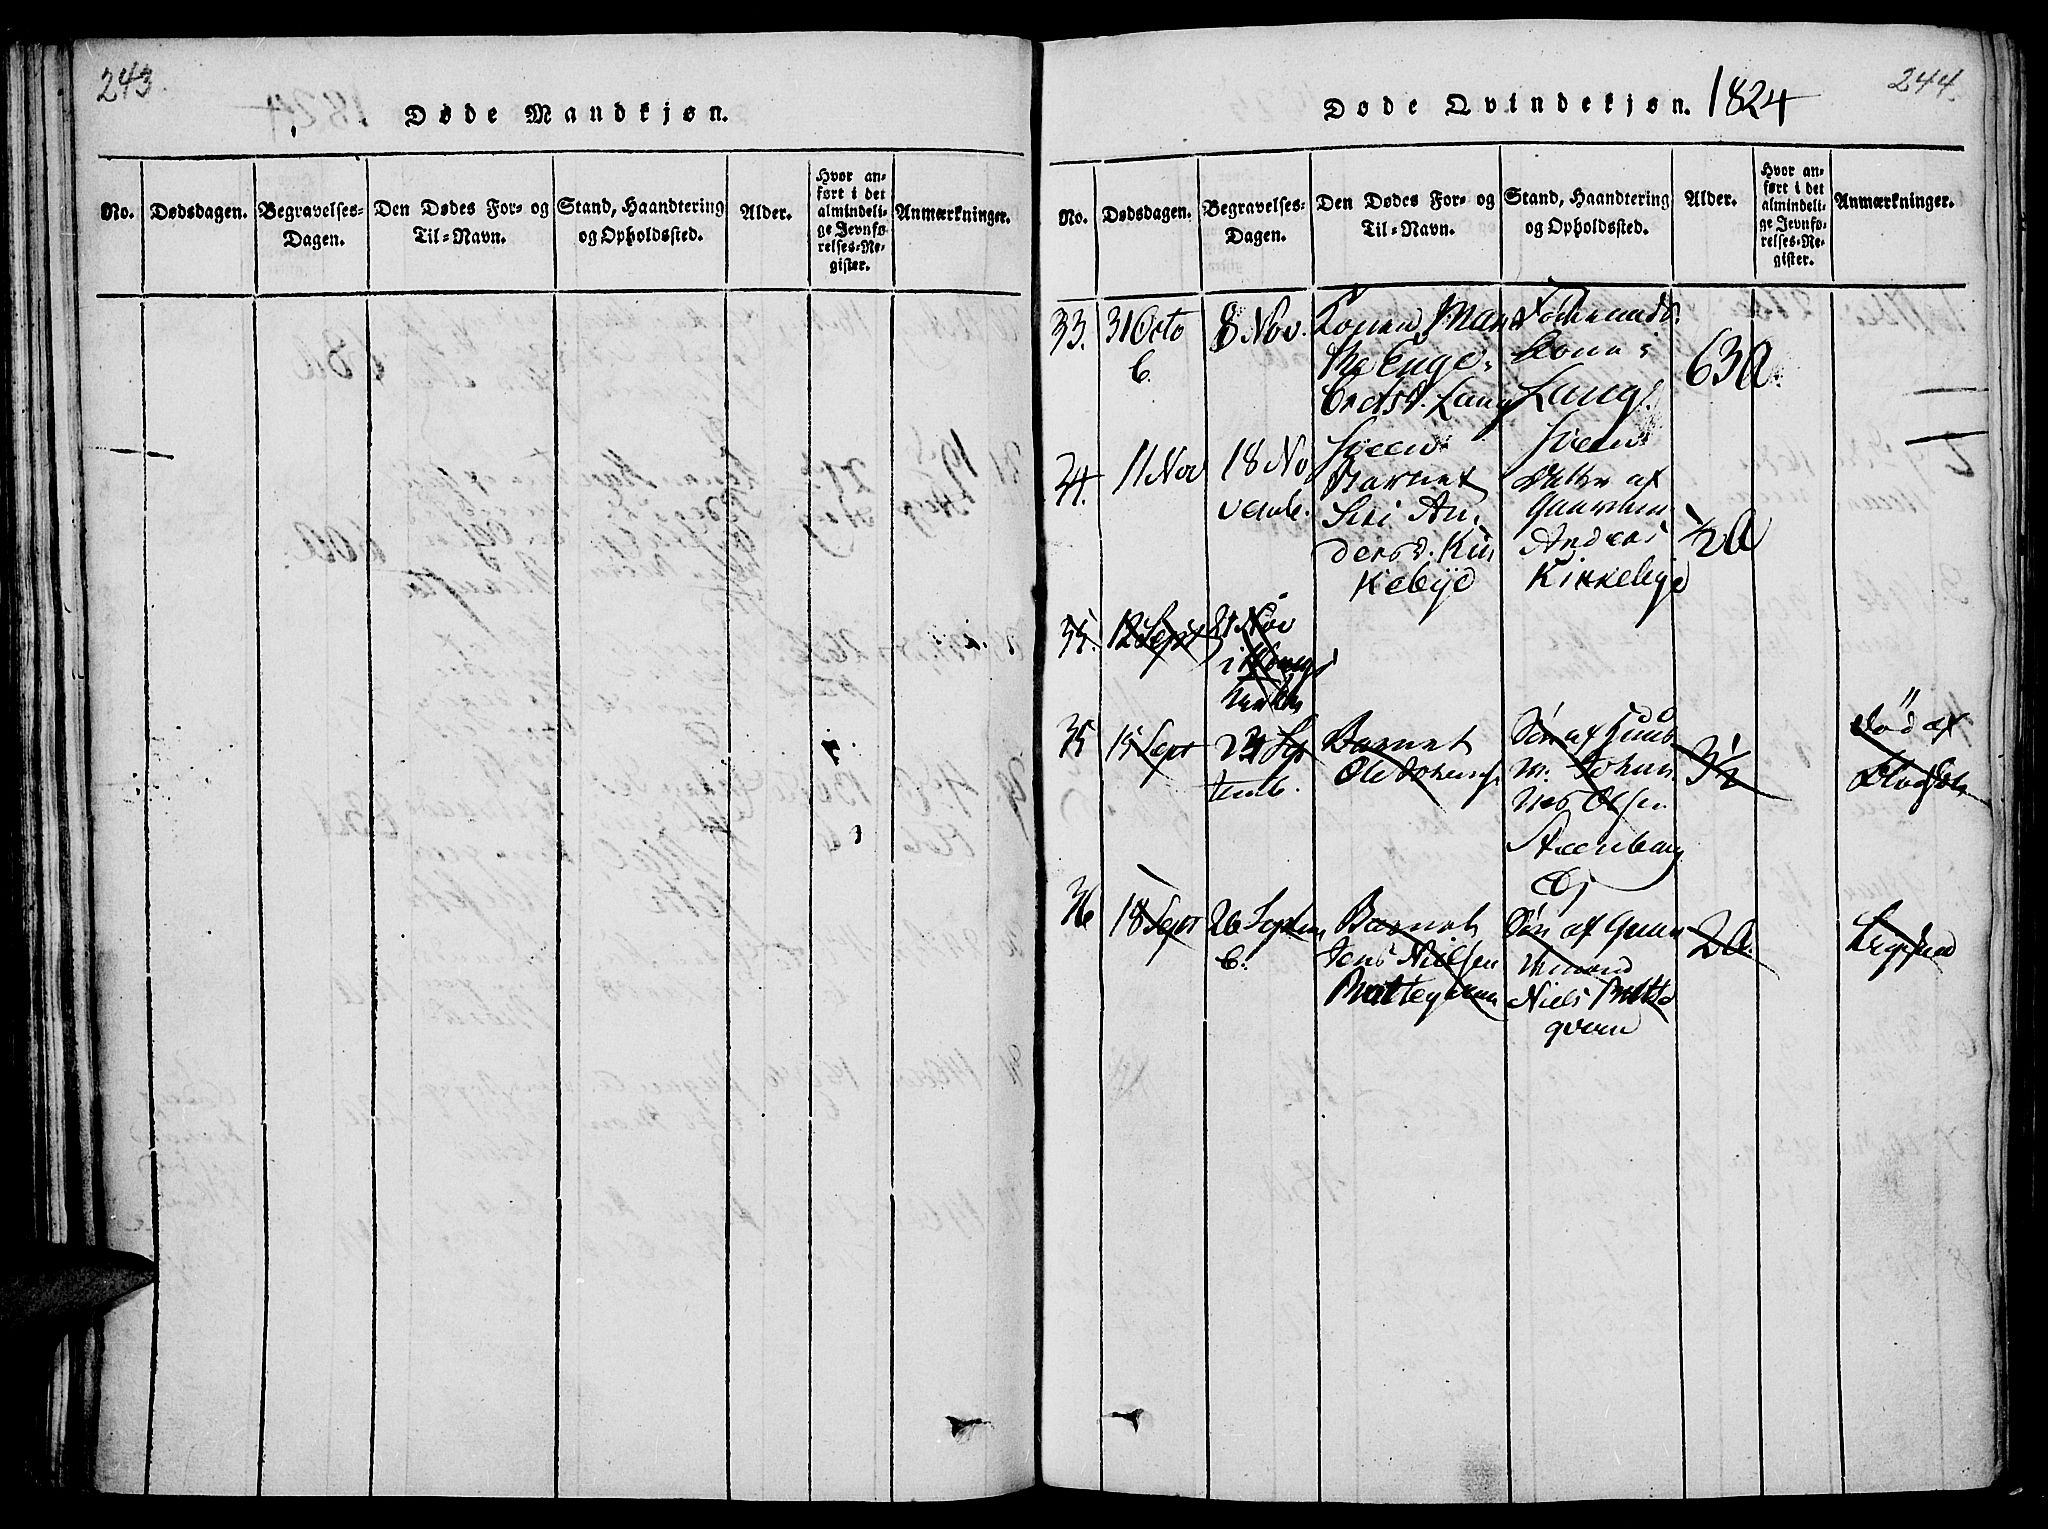 243.
Døde Mandkjøn.
No.
Dødsdagen.
Begravelses-
Dagen.
Den Dødes For- og
Til-Navn.
Stand, Haandtering
og Opholdssted.
Alder.
Hvor an-
ført i det
almindeli-
ge Jevnfø-
relses-Re-
gister.
Anmærkninger.
244.
Døde Qvindekjøn. 1824
No.
Dødsdagen.
Begravelses-
Dagen.
Den Dødes For- og
Til-Navn.
Stand, Haandtering
og Opholdssted.
Alder.
Hvor an-
ført i det
almindeli-
ge Jevnfø-
relses-Re-
gister.
Anmærkninger.
33.
31 Octo
b.
8 Nov.
Konen Mar
the Enge-
bretsd. Lang
Kone
Lang
63 a.
34.
11 Nov
18 No
vemb.
Barnet
Siri An-
dersd. Kir
kebye
Datter af
Gaardm
Anders
Kirkebye
1/2 a
35.
12 Sept
21 Nov
i
35
15 Sept
23 Sep
temb.
Barnet
Ole Johans
Søn af Huus
m. Johan
nes Olsen
3 1/2
død af
36
18 Sept
26 Septem
b.
Barnet
Jens Nielsen
Søn af Gaar
dmand
Niels
qvern
2 a.